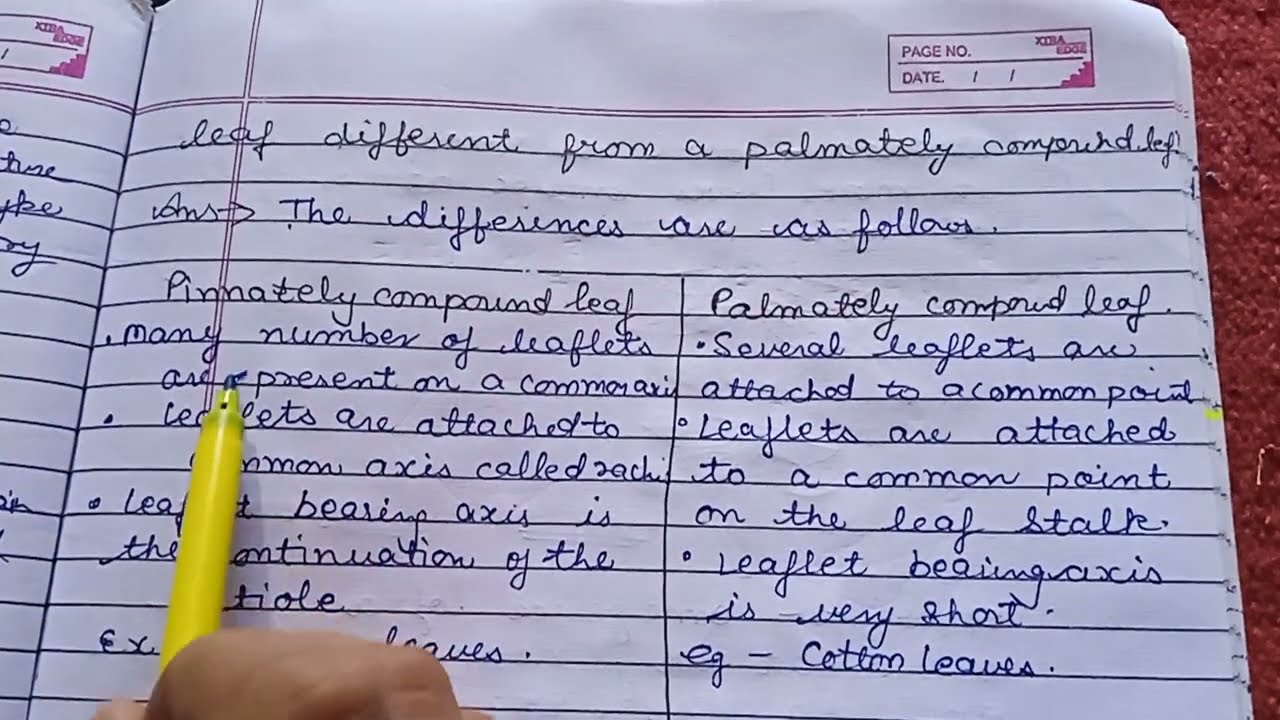 XTRA EDGE
/
PAGE NO.
XTRA EDGE
DATE. / /
ture
leaf different from a palmately compound leaf
Ans → The differences are as follows.
Pinnately compound leaf
• many number of leaflets
are present on a common axis
• leaflets are attached to
common axis called rachi
• leaflet bearing axis is
the continuation of the
tiole
Ex leaves.
Palmately compoud leaf.
• Several leaflets are
attached to a common point
• Leaflets are attached
to a common point
on the leaf stalk.
• Leaflet beaiing axis
is very short.
eg - Cotton leaves.